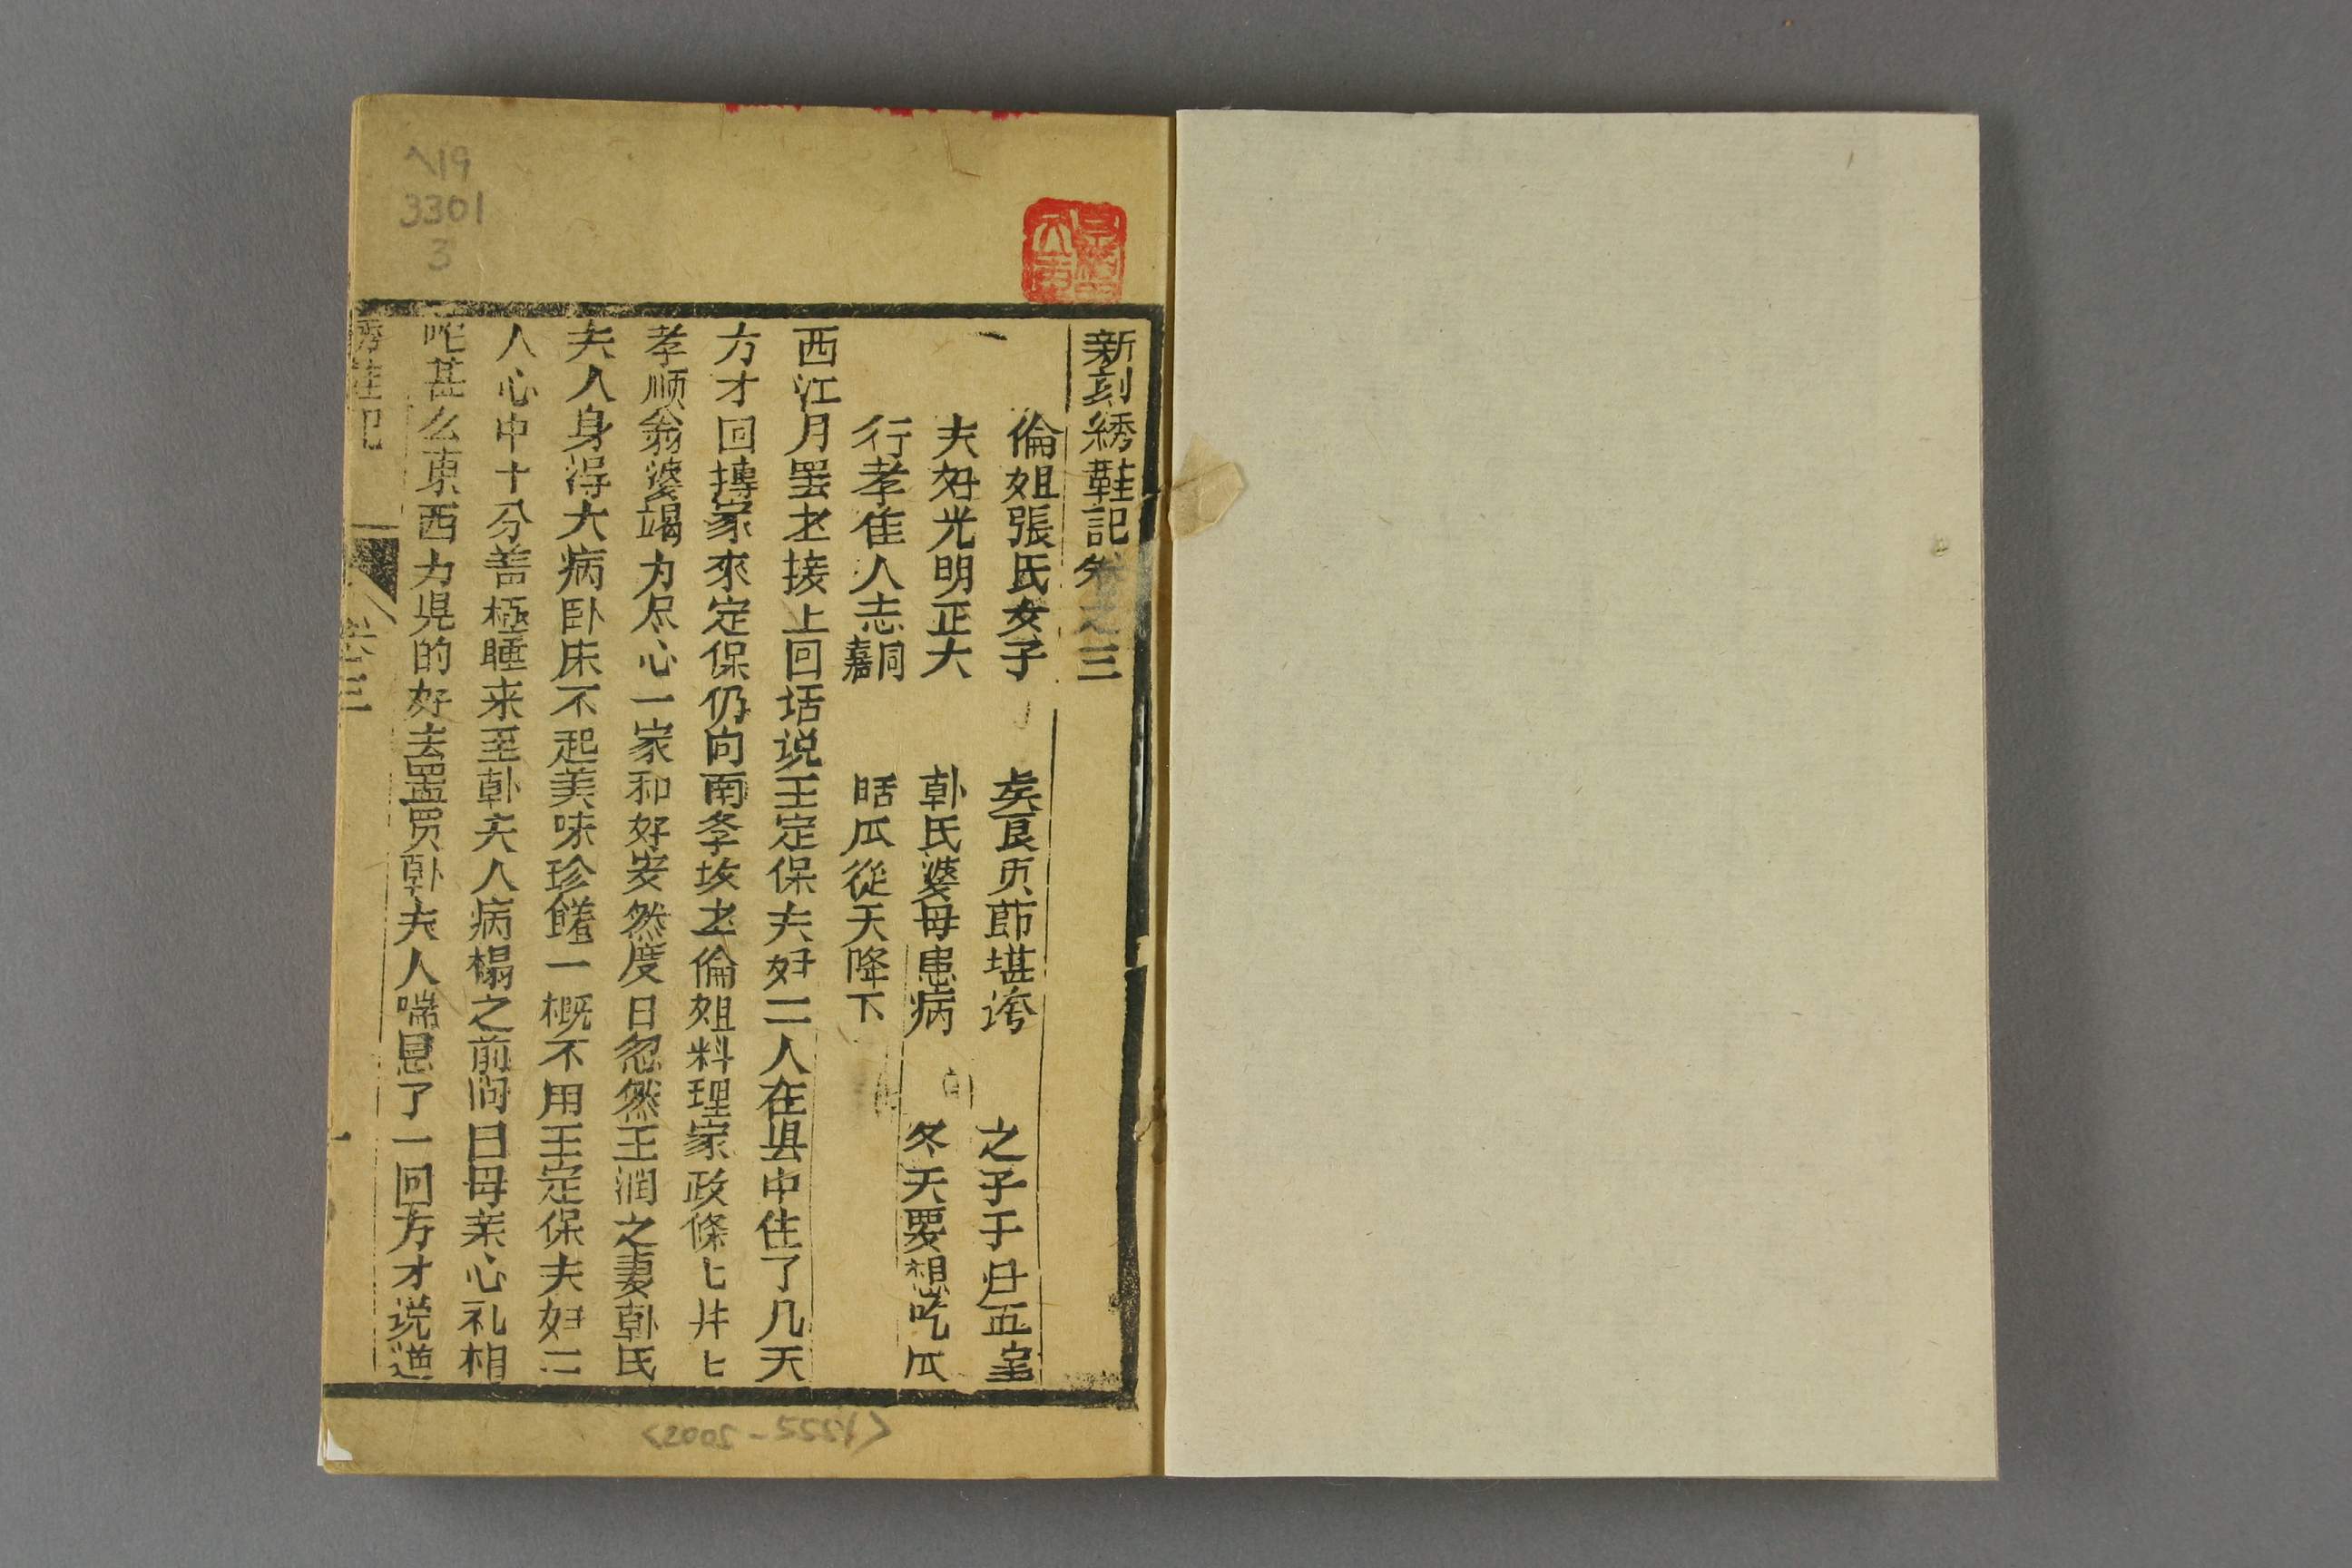 新刻綉鞋記卷之三
倫姐張氏女子 贞節堪誇 之子于归
夫妇光明正大 韩氏婆母患病 冬天要想吃瓜
行孝佳人志 甜瓜從天降下
西江月罢 接上回话说王定保夫妇二人在县中住了几天
方才回轉家來定保仍向南李 倫姐料理家政條匕井匕
孝顺翁婆竭力尽心一家和好安然度日忽然王潤之妻韩氏
夫人身得大病卧床不起美味珍饈一概不用王定保夫妇二
人心中十分着極 来至韩夫人病榻之前问曰母亲心礼相
吃甚么東西力见的好去置買韩夫人喘息了一回方才说道
綉鞋記 卷三 一
へ19
3301
3